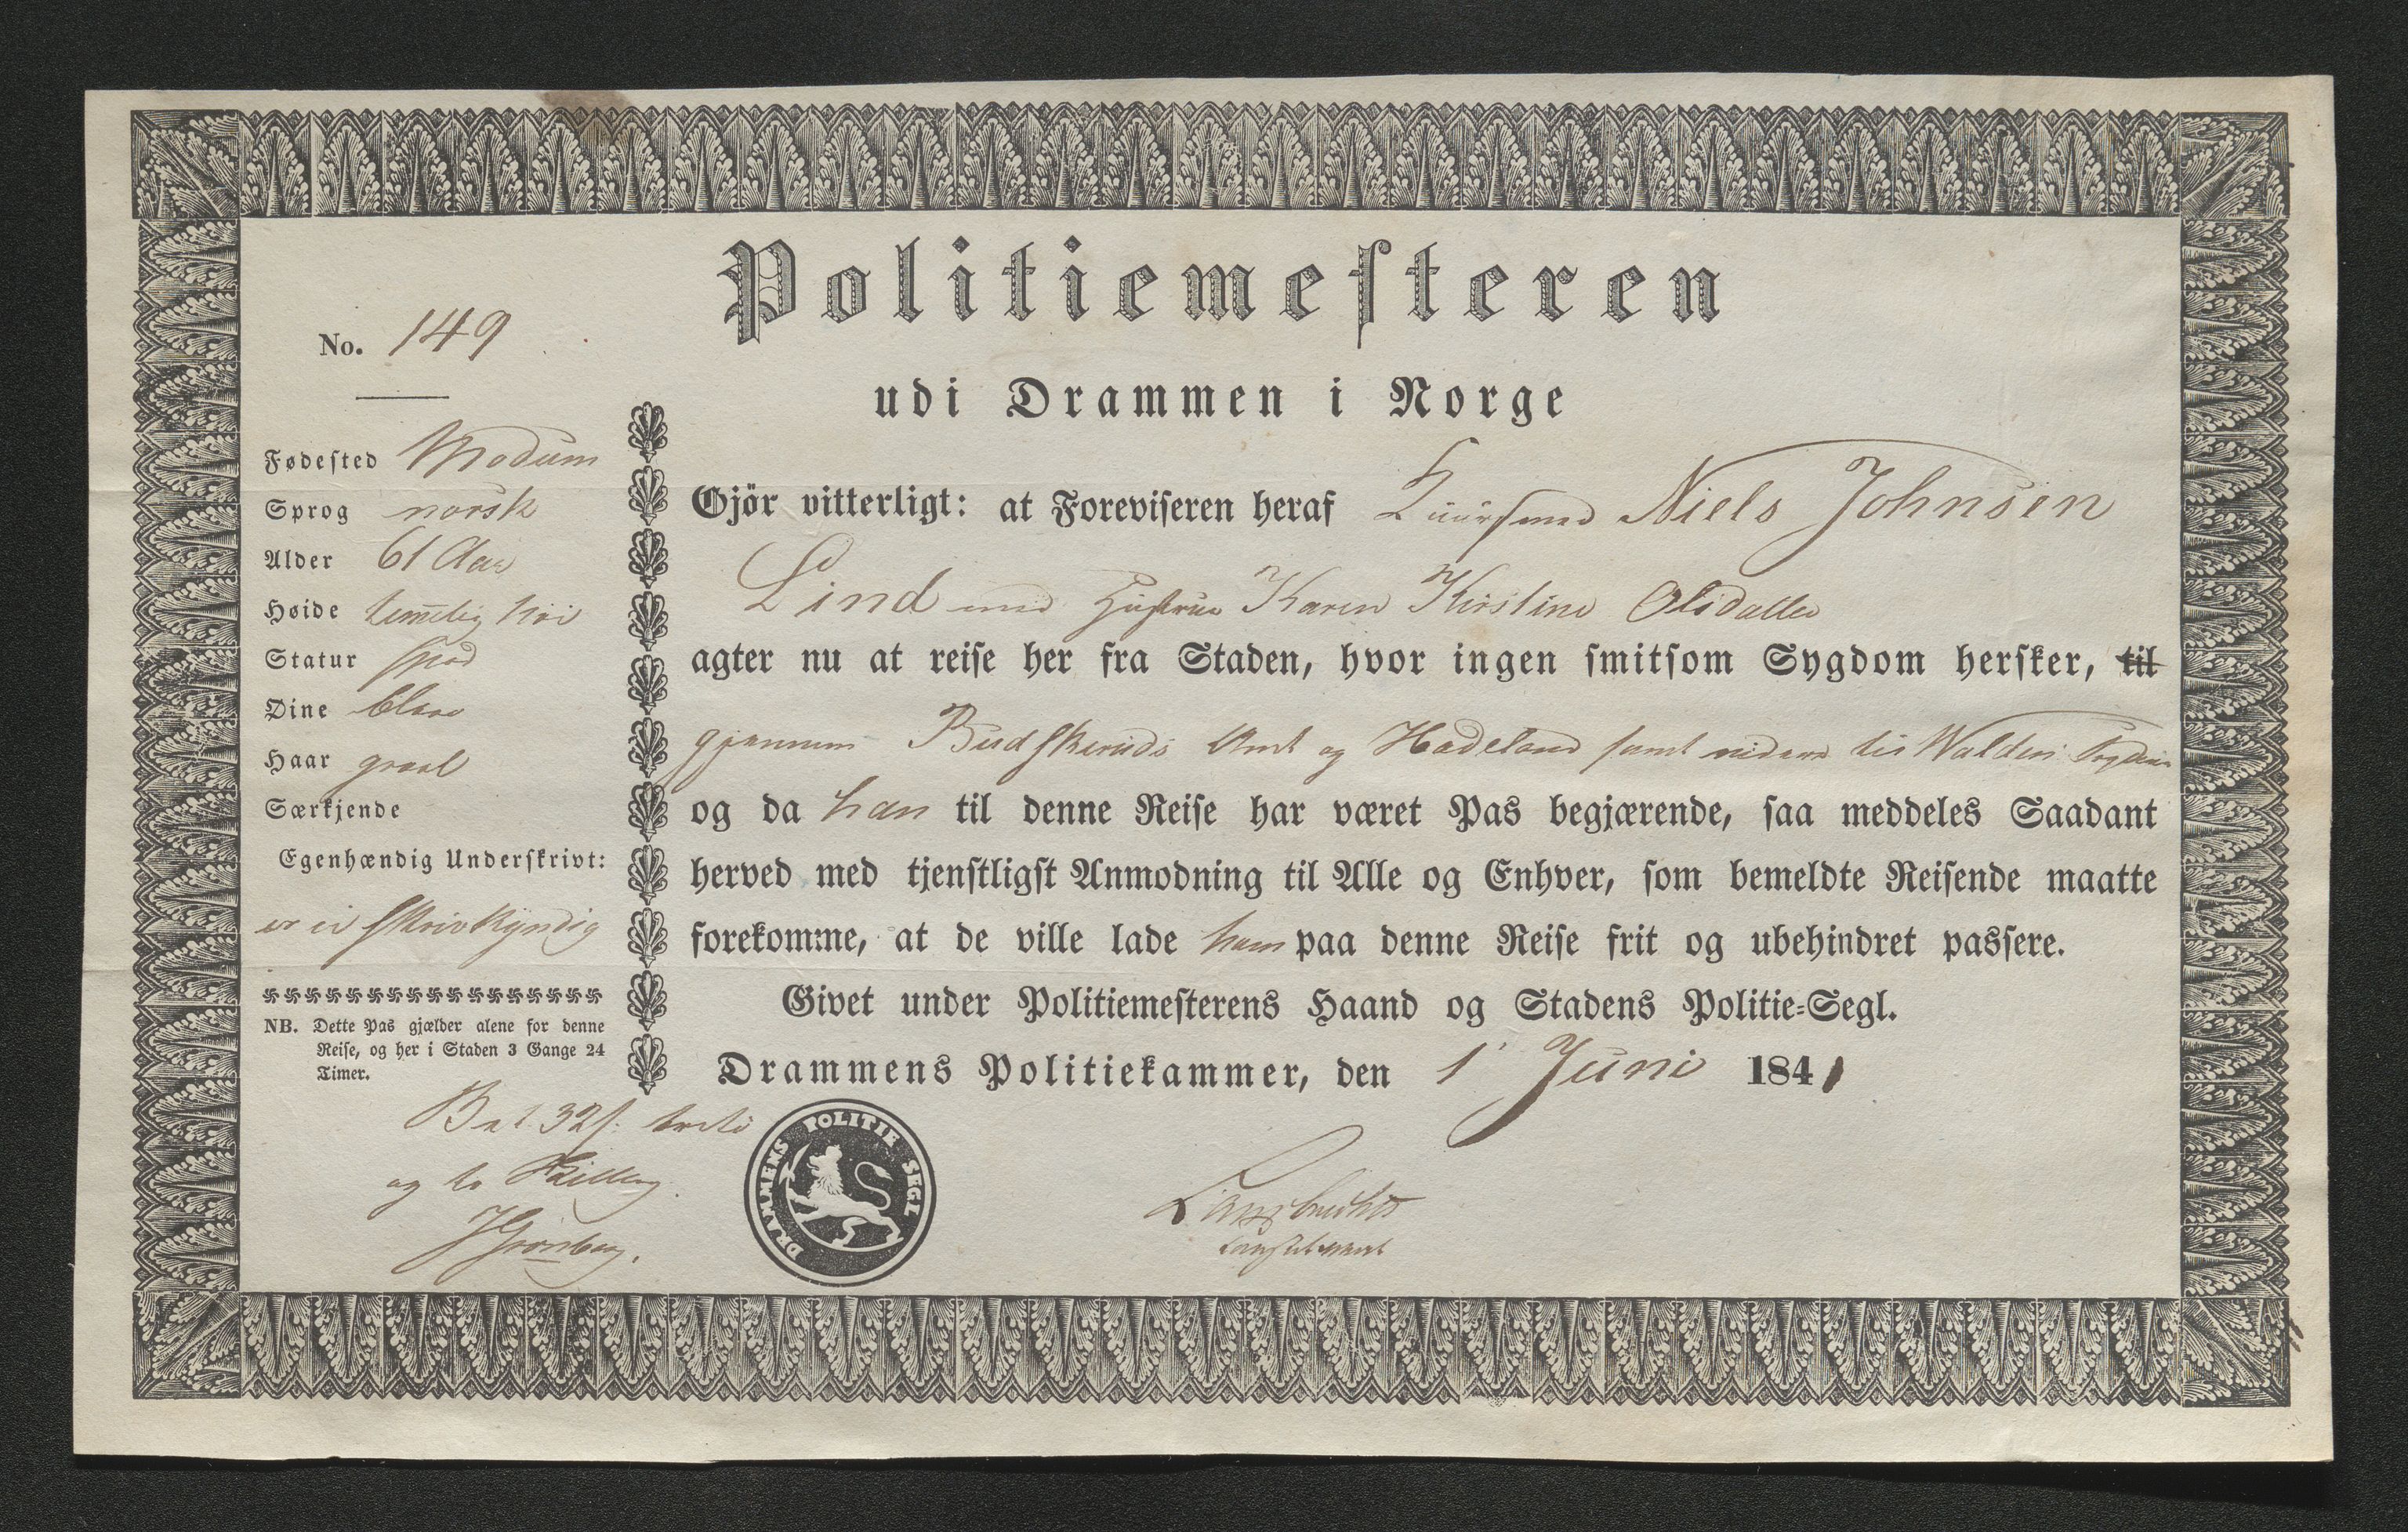 Politiemesteren
udi Drammen i Norge
No. 149
Fødested Modum
Sprog norsk
Alder 61 Aar
Høide temmelig høi
Statur spæd
Øine blaae
Haar graat
Særkjende
Egenhændig Underskrivt:
er ei skrivkyndig
NB. Dette Pas gjælder alene for denne
Reise, og her i Staden 3 Gange 24
Timer.
Bet. 32 s: treti
og to Skilling.
Gjør vitterligt: at Foreviseren heraf Huusmand Niels Johnsen
Lind med Hustrue Karen Kirstine Olsdatter
agter nu at reise her fra Staden, hvor ingen smitsom Sygdom hersker, til
gjennem Budskeruds Amt og Hadeland samt videre til Walders Fogderie
og da han til denne Reise har været Pas begjærende, saa meddeles Saadant
herved med tjenstligst Anmodning til Alle og Enhver, som bemeldte Reisende maatte
forekomme, at de ville lade ham paa denne Reise frit og ubehindret passere.
Givet under Politiemesterens Haand og Stadens Politie-Segl.
Drammens Politiekammer, den 1 Juni 1841
DRAMMENS POLITIE SEGL
constitueret